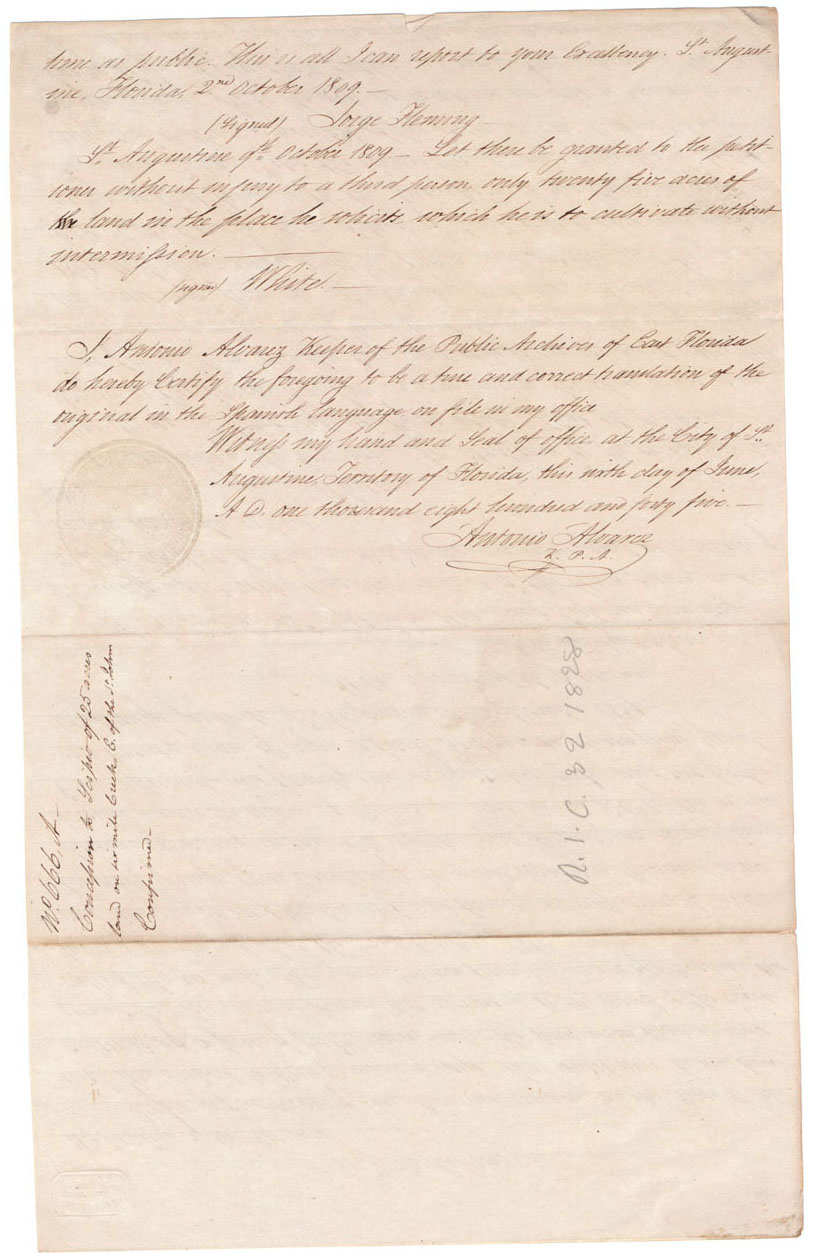 time as public. This is all I can report to your Excellency. St. August-
ine, Florida, 2nd October 1809.—
(Signed) Jorge Fleming—
St. Augustine 9th October 1809— Let there be granted to the petit-
ioner without injury to a third person, only twenty five acres of
land in the place he solicits which he is to cultivate without
intermission.
(signed) White.—
I, Antonio Alvarez Keeper of the Public Archives of East Florida
do hereby Certify the foregoing to be a true and correct translation of the
original in the Spanish language on file in my office
Witness my hand and Seal of office, at the City of St.
Augustine, Territory of Florida, this sixth day of June,
A.D. one thousand eight hundred and forty five.—
Antonio Alvarez
K. P. A.
No. 666 A—
Concession to Scipio of 25 acres
land on six mile Creek, E. of the St. John
Confirmed—
R. I. C. 32 1828